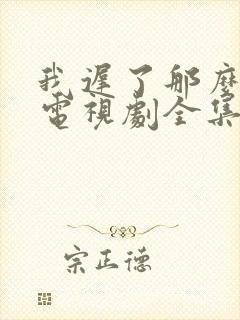 我遲了那麼
電視劇全集
宗正德